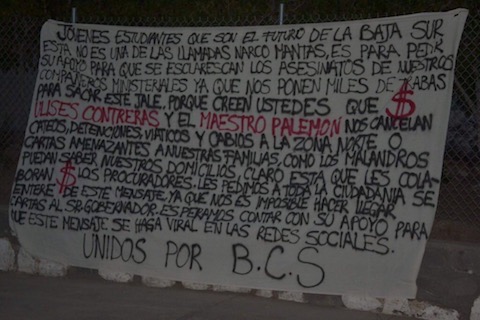 JOVENES ESTUDIANTES QUE SON EL FUTURO DE LA BAJA SUR
ESTA NO ES UNA DE LAS LLAMADAS NARCO MANTAS, ES PARA PEDIR
SU APOYO PARA QUE SE ESCLARESCAN LOS ASESINATOS DE NUESTROS
COMPAÑEROS MINISTERIALES YA QUE NOS PONEN MILES DE TRABAS
PARA SACAR ESTE JALE. PORQUE CREEN USTEDES QUE $
ULISES CONTRERAS Y EL MAESTRO PALEMON NOS CANCELAN
CATEOS, DETENCIONES, VIATICOS Y CABIOS A LA ZONA NORTE O
CARTAS AMENAZANTES A NUESTRAS FAMILIAS, COMO LOS MALANDROS
PUEDAN SABER NUESTROS DOMICILIOS, CLARO ESTA QUE LES COLA-
BORAN $ LOS PROCURADORES. LES PEDIMOS A TODA LA CIUDADANIA SE
ENTERE DE ESTE MENSATE, YA QUE NOS ES IMPOSIBLE HACER LLEGAR
CARTAS AL SR. GOBERNADOR. ESPERAMOS CONTAR CON SU APOYO PARA
QUE ESTE MENSAJE SE HAGA VIRAL EN LAS REDES SOCIALES.
UNIDOS POR B.C.S